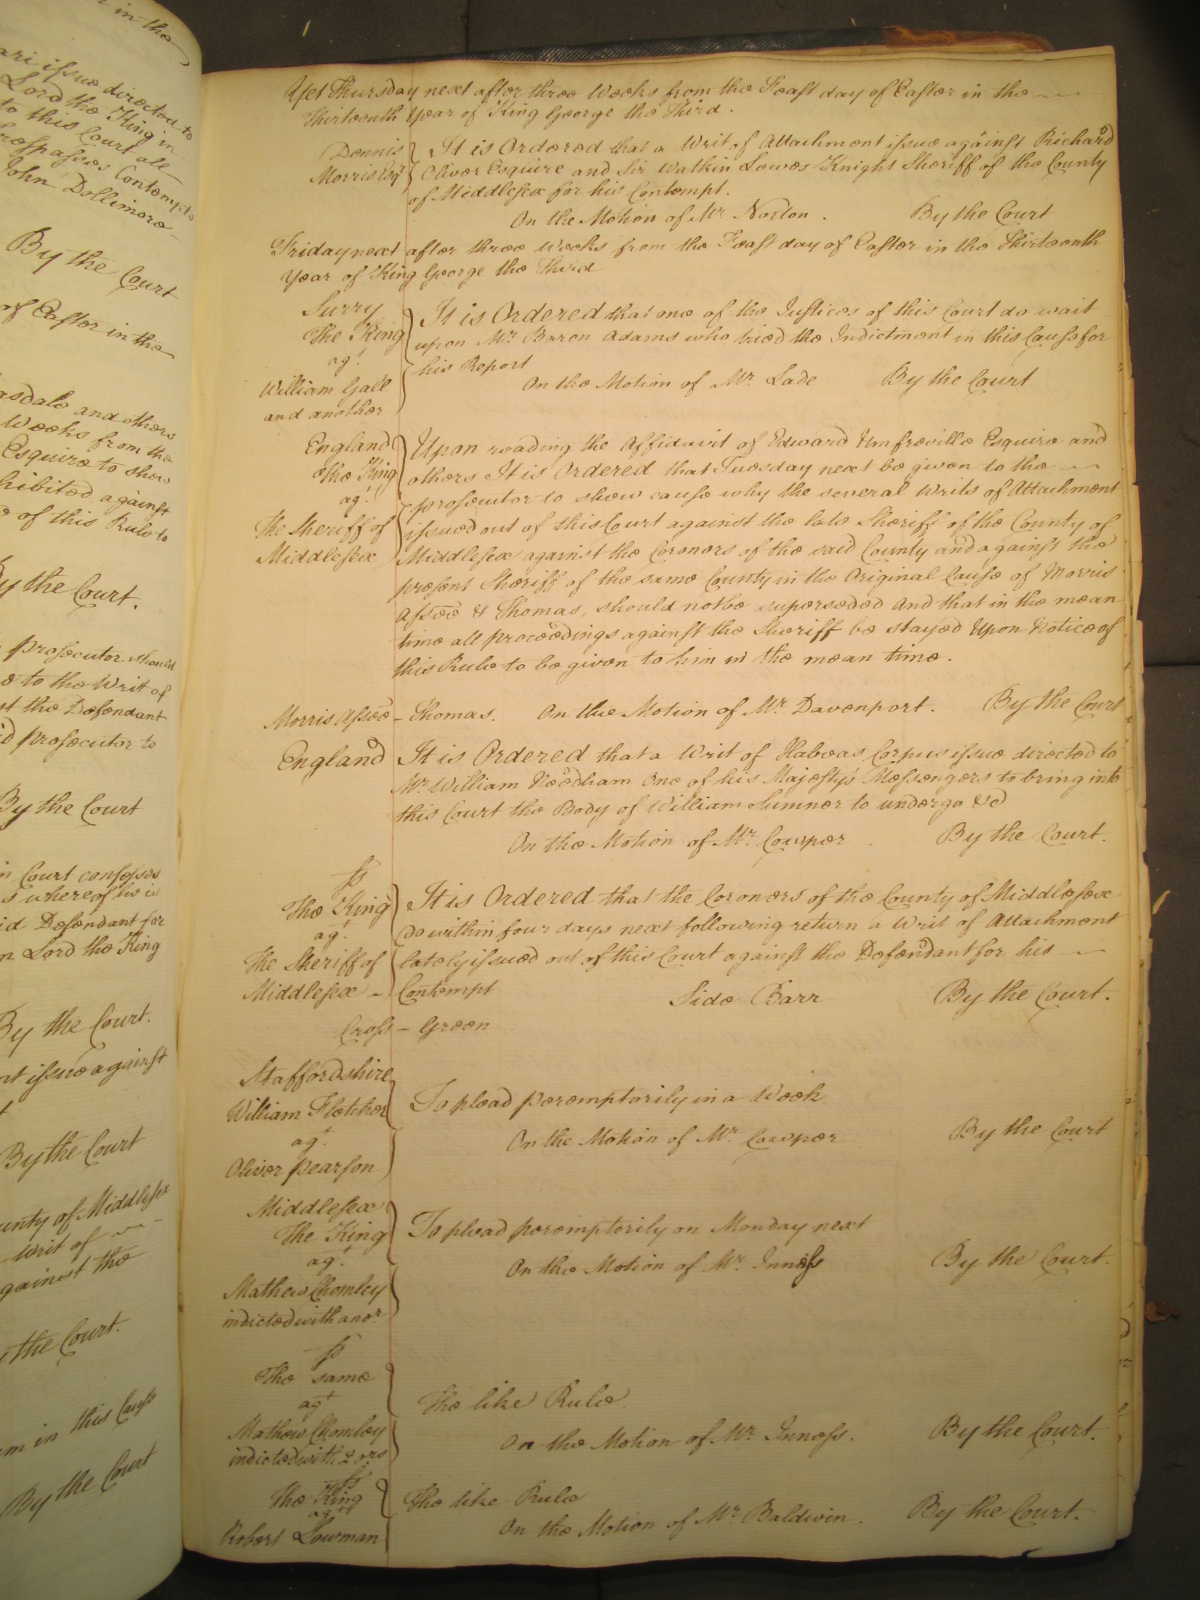 in the
ari issue directed to
Lord the King in
to this Court all
Trespasses Contempts
John Dollimore
By the Court
of Easter in the
asdale and others
Weeks from the
Esquire to shew
hibited against
of this Rule to
By the Court.
Prosecutor should
to the Writ of
st the Defendant
Prosecutor to
By the Court
in Court confesses
whereof he is
id Defendant for
n Lord the King
By the Court.
nt issue against
By the Court
unty of Middlesex
Writ of
gainst the
the Court.
m in this Cause
By the Court
Yet Thursday next after three Weeks from the Feast day of Easter in the
Thirteenth Year of King George the Third.
Dennis It is Ordered that a Writ of Attachment issue against Richard
Morris Esqr Oliver Esquire and Sir Watkin Lewes Knight Sheriff of the County
of Middlesex for his Contempt.
On the Motion of Mr. Norton. By the Court
Friday next after three Weeks from the Feast day of Easter in the Thirteenth
Year of King George the Third
Surry
The King It is Ordered that one of the Justices of this Court do wait
agt. upon Mr. Baron Adams who tried the Indictment in this Cause for
his Report
William Gall On the Motion of Mr. Lade By the Court
and another
England Upon reading the Affidavit of Edward Umfreville Esquire and
The King others It is Ordered that Tuesday next be given to the
agt. prosecutor to shew cause why the several Writs of Attachment
The Sheriff of issued out of this Court against the late Sheriff of the County of
Middlesex Middlesex against the Coroners of the said County and against the
present Sheriff of the same County in the Original Cause of Morris
Assee & Thomas, should not be superseded And that in the mean
time all proceedings against the Sheriff be stayed Upon Notice of
this Rule to be given to him in the mean time.
Morris Assee – Thomas. On the Motion of Mr. Davenport. By the Court
England It is Ordered that a Writ of Habeas Corpus issue directed to
Mr. William Needham One of his Majesty's Messengers to bring into
this Court the Body of William Sumner to undergo &c
On the Motion of Mr. Cowper. By the Court.
ss
The King It is Ordered that the Coroners of the County of Middlesex
agt. do within four days next following return a Writ of Attachment
The Sheriff of lately issued out of this Court against the Defendant for his
Middlesex – Contempt Side Barr By the Court.
Cross – Green
Staffordshire
William Fletcher To plead peremptorily in a Week
agt. On the Motion of Mr. Cowper By the Court
Oliver Pearson
Middlesex
The King To plead peremptorily on Monday next
agt. On the Motion of Mr. Inness By the Court.
Mathew Chomley
indicted with anor.
ss
The same
agt The like Rule
Mathew Chomley On the Motion of Mr. Inness. By the Court.
indicted with 2 ors
ss
The King The like Rule
agt On the Motion of Mr. Baldwin. By the Court.
Robert Lowman